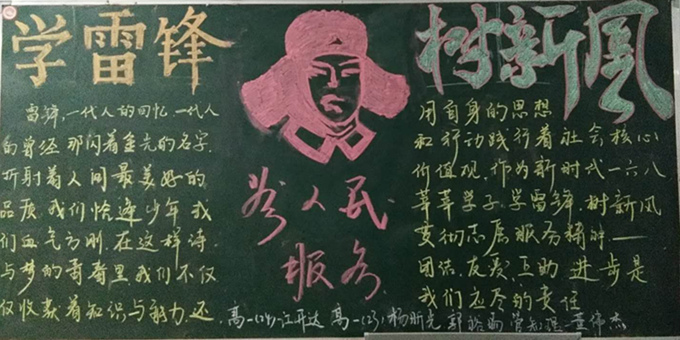 学雷锋
树新風
雷锋,一代人的回忆,一代人
的曾经.那闪着金光的名字.
折射着人间最美好的
品质.我们恰逢少年.我
们血气方刚.在这样诗
与梦的青春里.我们不仅
仅收获着知识与能力.还
为人民
报务
用自身的思想
和行动践行着社会核心
价值观.作为新时代一六八
莘莘学子.学雷锋.树新风
贯彻志愿服务精神.——
团结、友爱、互助、进步是
我们应尽的责任
高一(24)江开达 高一(23)杨昕光 董伟杰